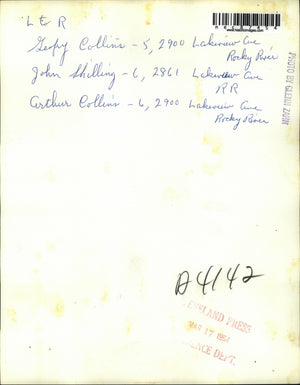 L to R
Gery Collins - 5, 2900 Lakeview Ave
Rocky River
John Skilling - 6, 2861 Lakeview Ave
RR
Arthur Collins - 6, 2900 Lakeview Ave
Rocky River
PHOTO BY GLENN ZAHN
A4142
MAR 17
PRESS
DEPT.